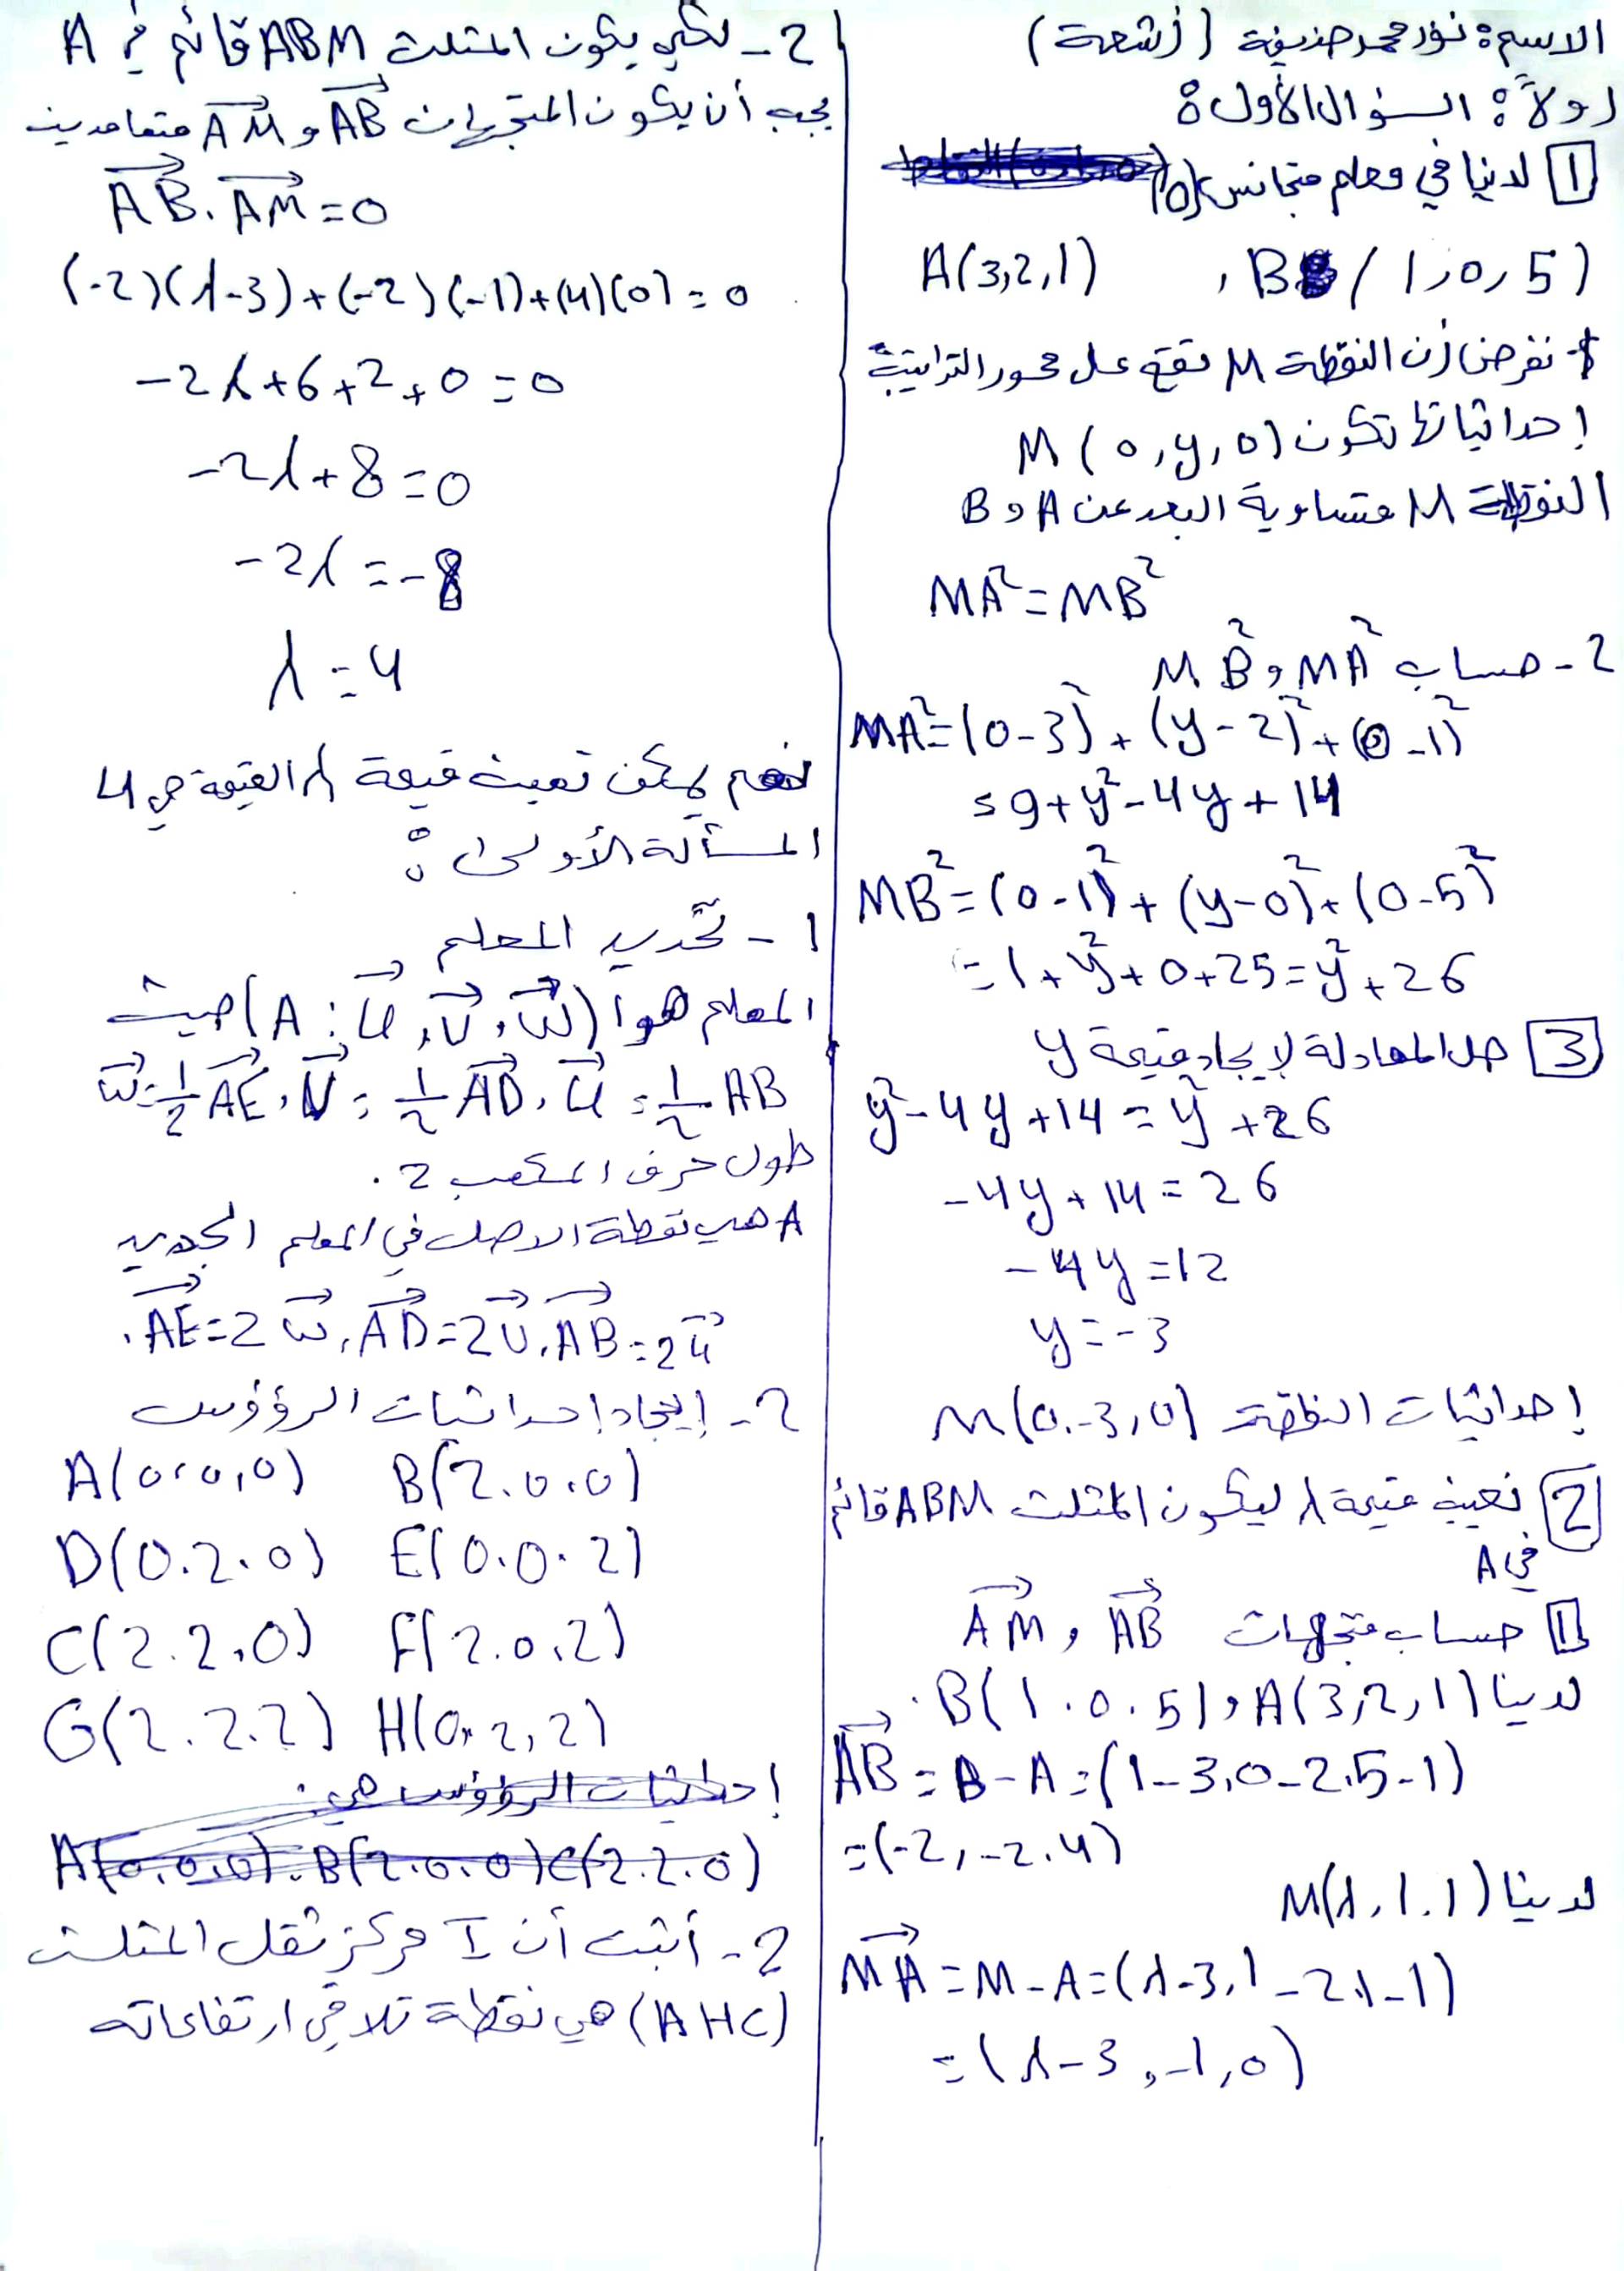 الاسم: نور محمد حنيفة (أشعة)
أولاً: السؤال الأول:
1 لدينا في معلم متجانس (0
A(3,2,1) , B(1,0,5)
نفرض أن النقطة M تقع على محور التراتيب
إحداثياتها تكون M(0,y,0)
النقطة M متساوية البعد عن A و B
MA²=MB²
2- حساب MA² و MB²
MA²=(0-3)²+(y-2)²+(0-1)²
=9+y²-4y+14
MB²=(0-1)²+(y-0)²+(0-5)²
=1+y²+0+25=y²+26
3 حل المعادلة لإيجاد قيمة y
y²-4y+14=y²+26
-4y+14=26
-4y=12
y=-3
إحداثيات النقطة M(0.-3,0)
2 تعيين قيمة λ ليكون المثلث ABM قائم
في A
1 حساب متجهات AB→ و AM→
لدينا A(3,2,1) و B(1.0.5).
AB→=B-A=(1-3,0-2,5-1)
=(-2,-2.4)
لدينا M(λ,1.1)
MA→=M-A=(λ-3,1-2,1-1)
=(λ-3,-1,0)
2- لكي يكون المثلث ABM قائم في A
يجب أن يكون المتجهان AB→ و AM→ متعامدين
AB→.AM→=0
(-2)(λ-3)+(-2)(-1)+(4)(0)=0
-2λ+6+2+0=0
-2λ+8=0
-2λ=-8
λ=4
نعم يمكن تعيين قيمة λ القيمة هي 4
المسألة الأولى:
1- تحديد المعلم
المعلم هو (A:u→,v→,w→) حيث
w→=1/2 AE→, v→=1/2 AD→, u→=1/2 AB
طول حرف المكعب 2.
A هي نقطة الاصل في المعلم الجديد
.AE→=2w→, AD→=2v→, AB→=2u→
2- إيجاد إحداثيات الرؤوس
A(0,0,0) B(2.0.0)
D(0.2.0) E(0.0.2)
C(2.2,0) F(2.0,2)
G(2.2.2) H(0,2,2)
إحداثيات الرؤوس هي:
A(0,0,0). B(2.0.0) C(2.2.0)
2- أثبت أن I مركز ثقل المثلث
(AHC) هي نقطة تلاقي ارتفاعاته